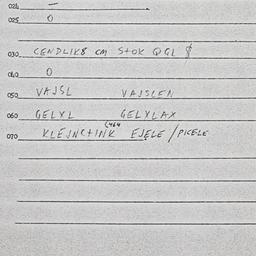 024 —
025 0
030 CENDLIK8 CM STOK QGL $
040 0
050 VAJSL VAJSLEN
060 GELXL GELXLAX
070 KLEJNCTINK EJELE / PICELE